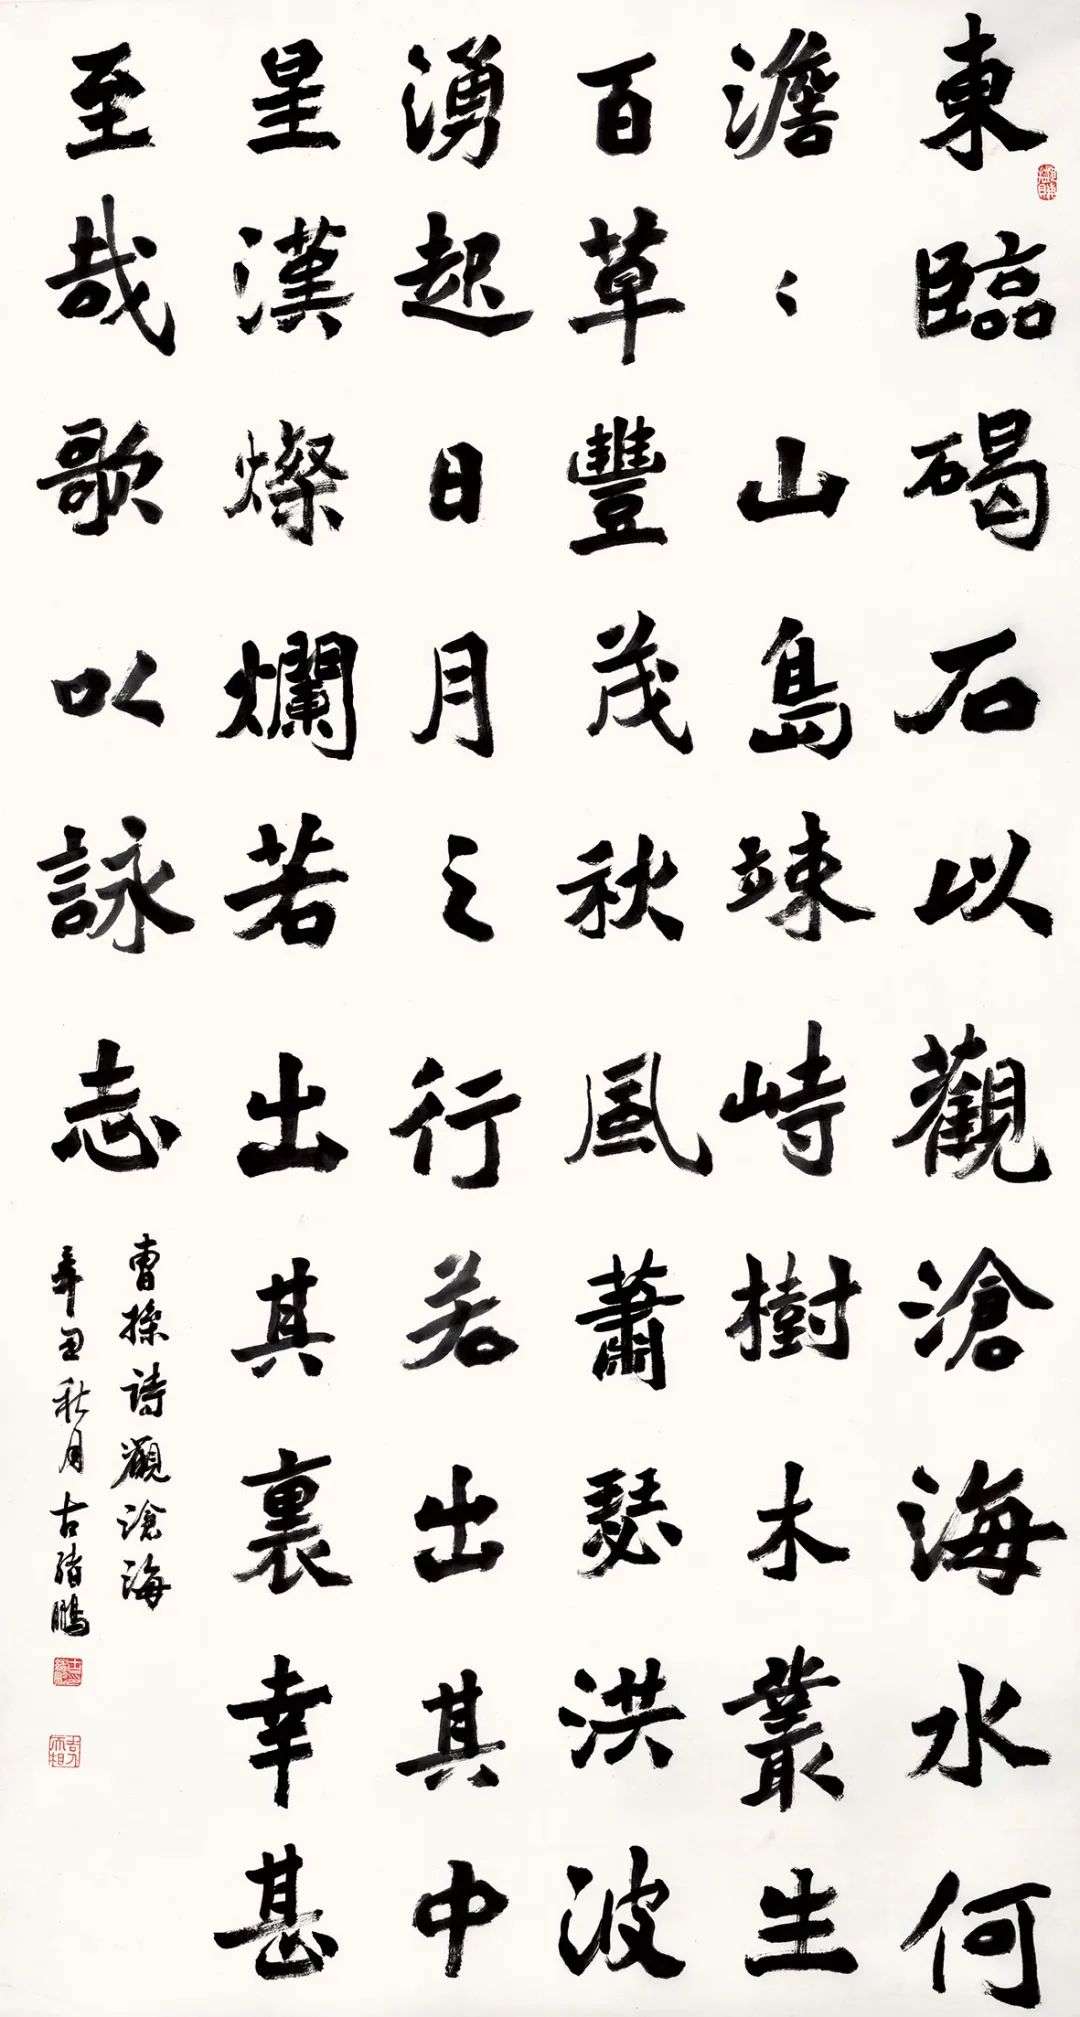 東臨碣石以觀滄海水何
澹〻山島竦峙樹木叢生
百草豐茂秋風蕭瑟洪波
湧起日月之行若出其中
星漢燦爛若出其裏幸甚
至哉歌以詠志
曹操詩觀滄海
辛丑秋月古鵬